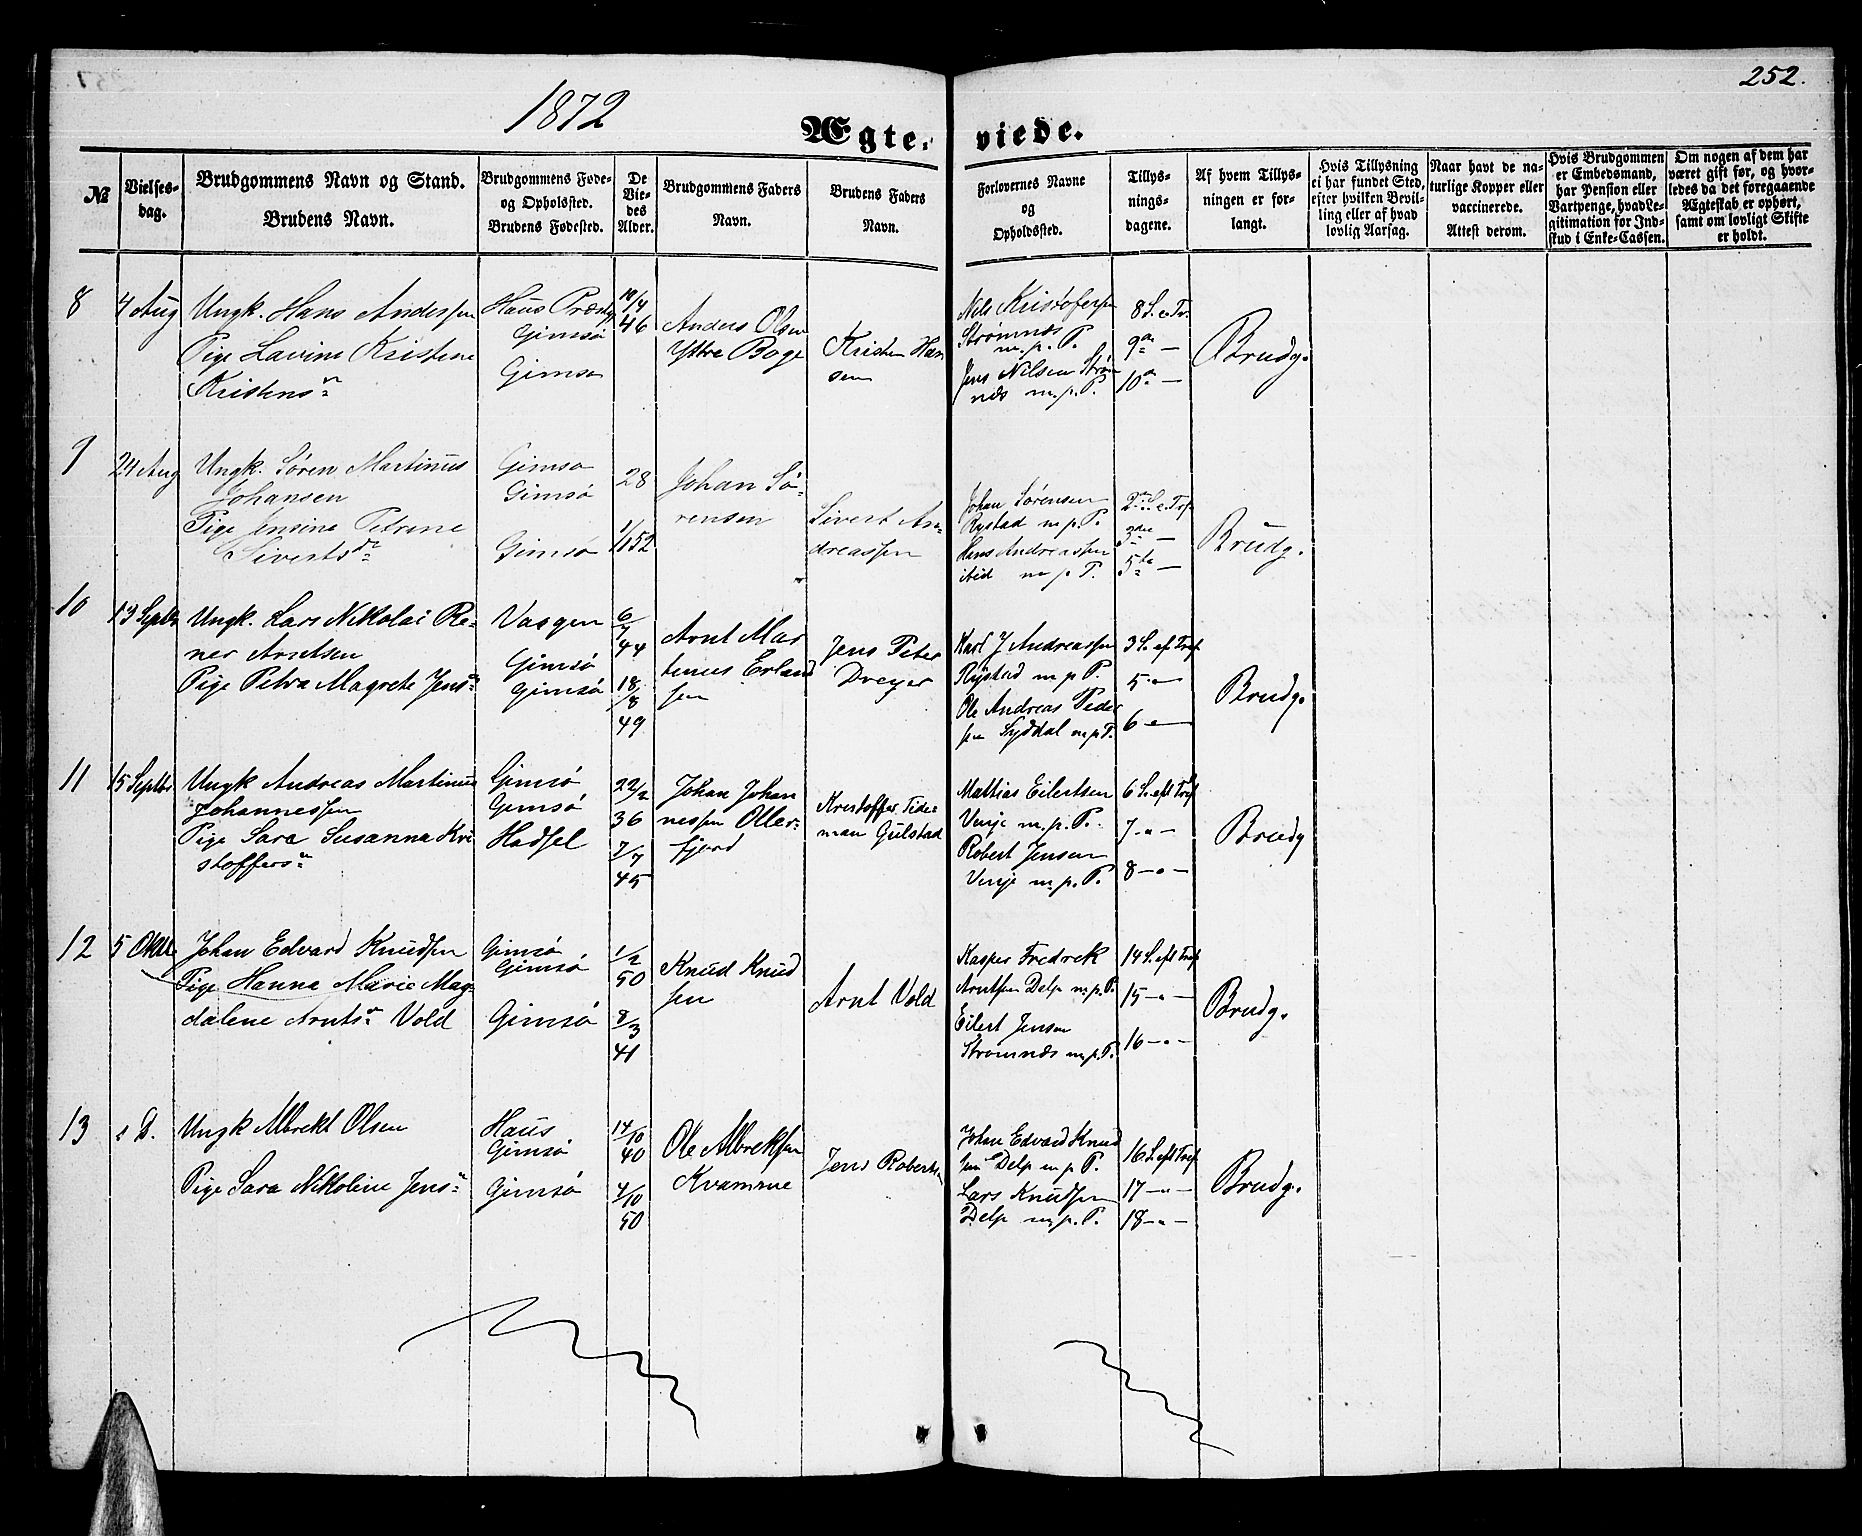 252.
1872
Ægteviede.
№
Vielses-
dag.
Brudgommens Navn og Stand.
Brudens Navn.
Brudgommens Føde-
og Opholdsted.
Brudens Fødested.
De
Vie-
des
Alder.
Brudgommens Faders
Navn.
Brudens Faders
Navn.
Forlovernes Navne
og
Opholdssted.
Tillys-
nings-
dagene.
Af hvem Tillys-
ningen er for-
langt.
Hvis Tillysning
ei har fundet Sted,
efter hvilken Bevil-
ling eller af hvad
lovlig Aarsag.
Naar havt de na-
turlige Kopper eller
vaccinerede.
Attest derom.
Hvis Brudgommen
er Embedsmand,
har Pension eller
Vartpenge, hvad Le-
gitimation for Ind-
skud i Enke-Cassen.
Om nogen af dem har
været gift før, og hvor-
ledes da det foregaaende
Ægteskab er ophørt,
samt om lovligt Skifte
er holdt.
8
4 Aug
Ungk. Hans Anderssen
Pige Lavine Kristene
Kristensn
Haus Præstg
Gimsø
Gimsø
10/4
46
Anders Olsen
Yttre Boge
Kristen Han
sen
Nils Kristofersen
Strømnæs
m. p. P.
Jens Nilsen Strøm
næs m. p. P.
8 S. e. Tr.
9de —
10de —
Brudg.
9
24 Aug
Ungk. Søren Martinus
Johansen
Pige Jensine Petrine
Sivertsdr
Gimsø
Gimsø
Gimsø
28
1/11 52
Johan Sø-
rensen
Sivert An-
dreassen
Johan Sørensen
Rystad m. p. P.
Hans Andreassen
ibid m. p. P.
2den S. e. Tref
3die —
5te —
Brudg.
10
13 Septbr
Ungk. Lars Nikolai Re-
ner Arntsen
Pige Petra Magrete Jensn
Vaagen
Gimsø
Gimsø
6/7
44
18/8
49
Arnt Mar
tinus Erland
sen
Jens Peter
Dreyer
Karl J Andreassen
Rystad m. p. P.
Ole Andreas Peder
sen Syddal m. p. P.
3 S. eft Tref
5 -"-
6 -"-
Brudg.
11
15 Septbr
Ungk Andreas Martinus
Johannessen
Pige Sara Susanna Kri
stoffersn
Gimsø
Gimsø
Hadsel
22/2
36
7/7
45
Johan Johan
nessen Oller-
fjord
Kristoffer Tide
man Gulstad
Mattias Eilertsen
Venje m. p. P.
Robert Jensen
Venje m. p. P.
6 S. eft Tref
7 -"-
8 -"-
Brudg
12
5 Oktb
Johan Edvard Knudsen
Pige Hanna Marie Mag-
dalene Arntsn Vold
Gimsø
Gimsø
Gimsø
1/2
50
8/3
41
Knud Knud
sen
Arnt Vold
Kasper Fredrek
Arntsen Delp m. p. P.
Eilert Jensen
Strømnæs m. p. P.
14 S. eft Tref
15 -"-
16 -"-
Brudg.
13
s D.
Ungk Albrekt Olsen
Pige Sara Nikoline Jensn
Haus
Gimsø
Gimsø
14/10
40
4/10
50
Ole Albreksen
Kvamme
Jens Roberts
Johan Edvard Knud
sen Delp m. p. P.
Lars Knudsen
Delp m. p. P.
16 S. eft Tref
17 -"-
18 -"-
Brudg.